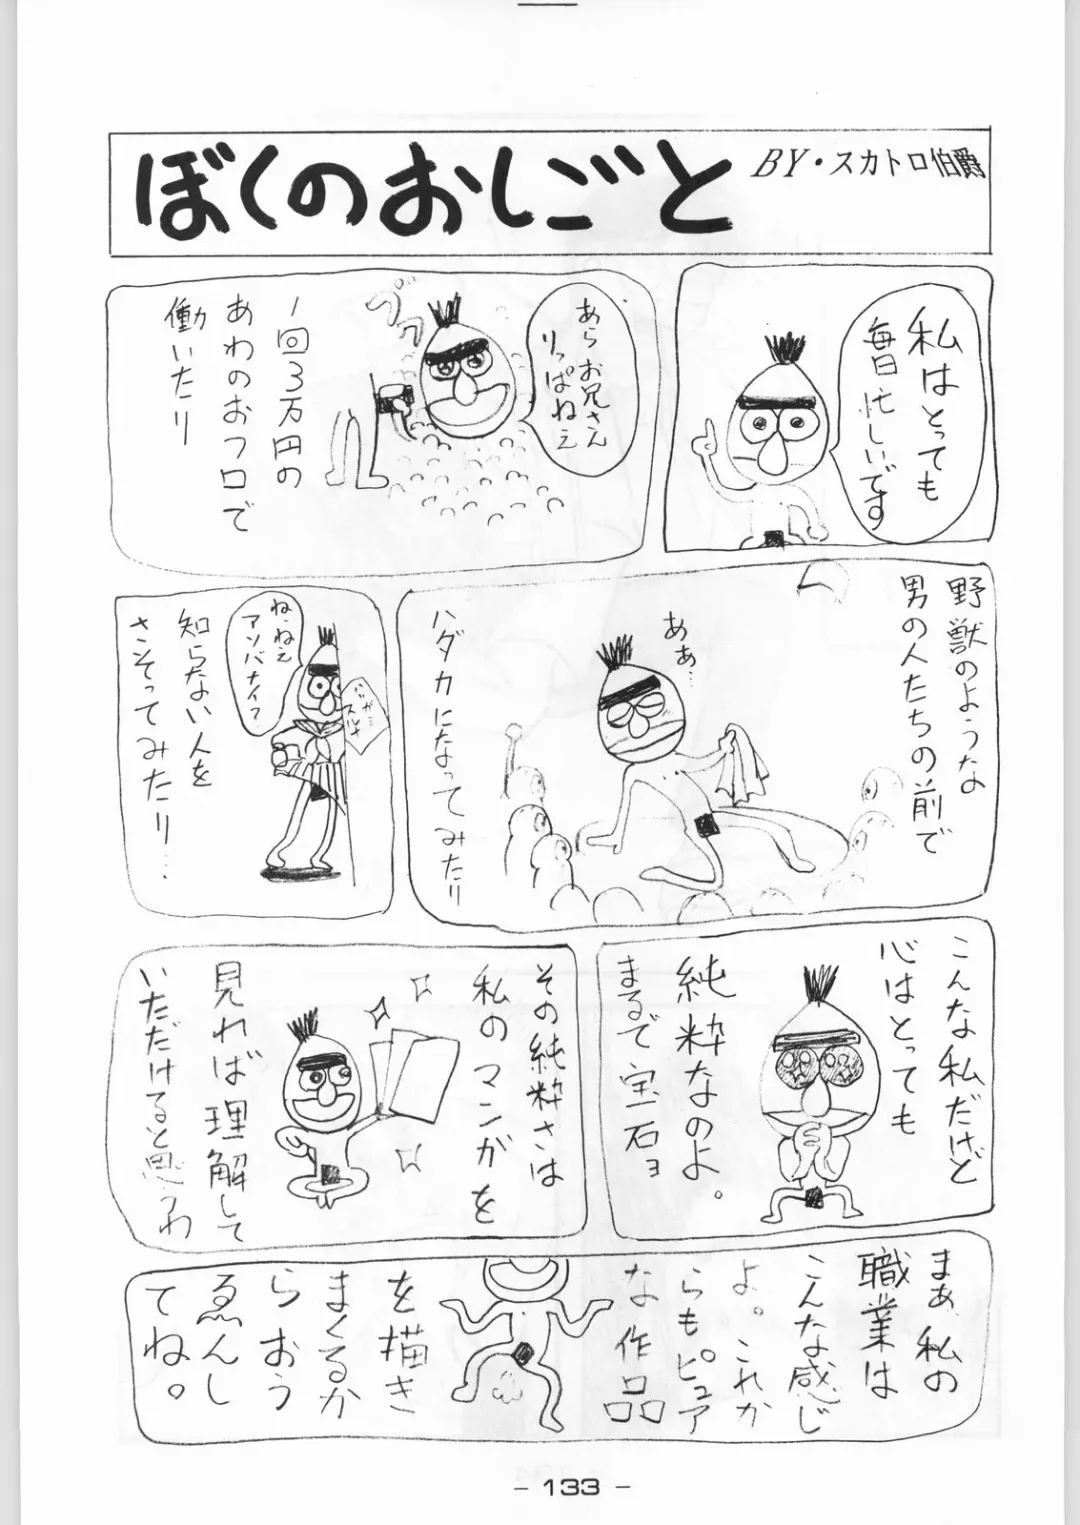 ぼくのおしごと
BY・スカトロ伯爵
私はとっても
毎日忙しいです
あらお兄さん
りっぱねぇ
ブク
1回3万円の
あわのおフロで
働いたり
野獣のような
男の人たちの前で
あぁ…
ハダカになってみたり
ね、ねぇ
アソバナイ?
知らない人を
さそってみたり…
こんな私だけど
心はとっても
純粋なのよ。
まるで宝石ョ
その純粋さは
私のマンガを
見れば理解して
いただけると思うわ
まぁ、私の
職業は
こんな感じ
よ。これか
らもピュア
な作品
を描き
まくるか
らおう
ゑんし
てね。
- 133 -